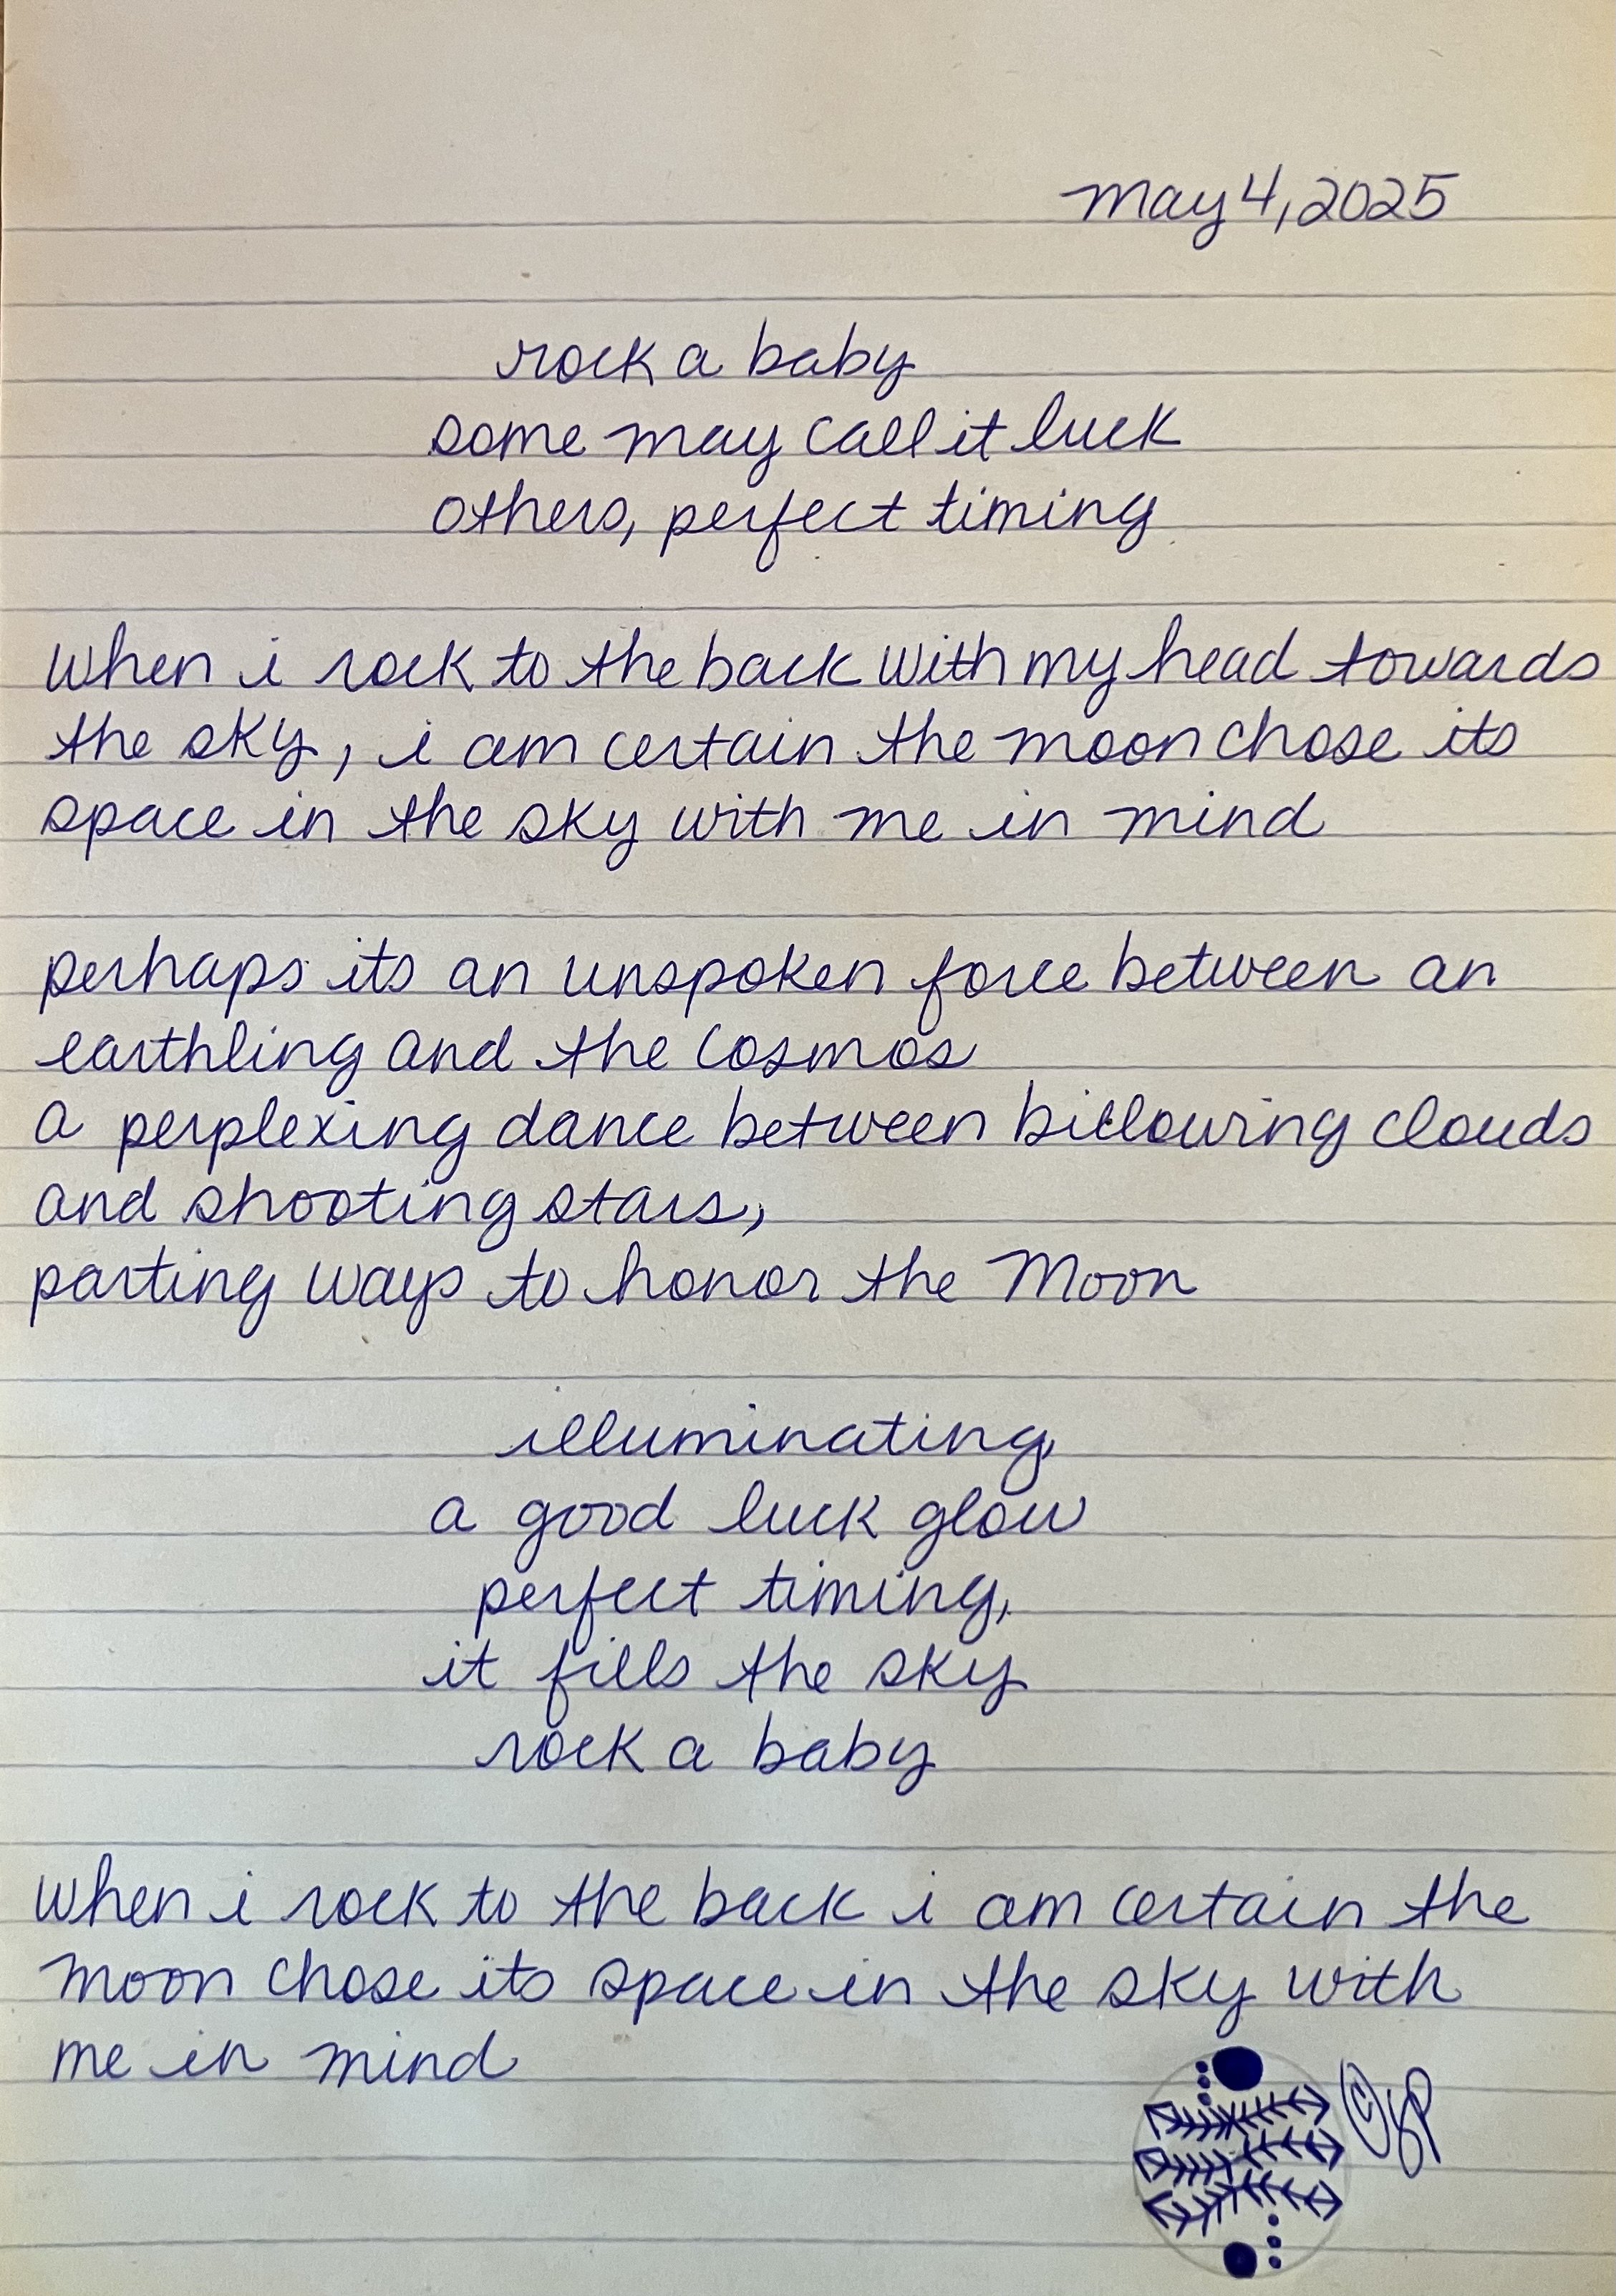 may 4, 2025
rock a baby
some may call it luck
others, perfect timing
when i rock to the back with my head towards
the sky, i am certain the moon chose its
space in the sky with me in mind
perhaps its an unspoken force between an
earthling and the cosmos
a perplexing dance between billowing clouds
and shooting stars,
parting ways to honor the Moon
illuminating,
a good luck glow
perfect timing,
it fills the sky
rock a baby
when i rock to the back i am certain the
moon chose its space in the sky with
me in mind